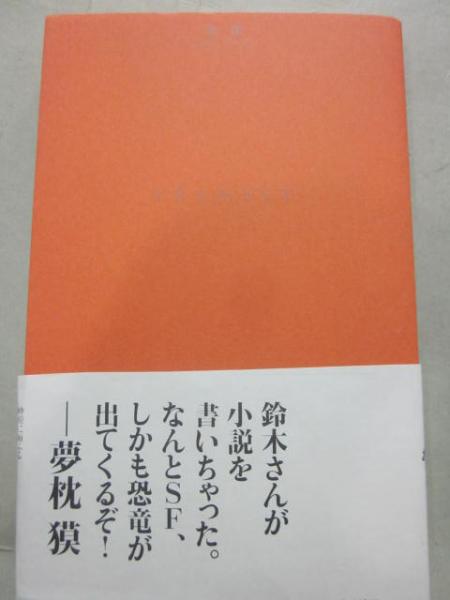 鈴木さんが
小説を
書いちゃった。
なんとSF、
しかも恐竜が
出てくるぞ!
──夢枕 獏